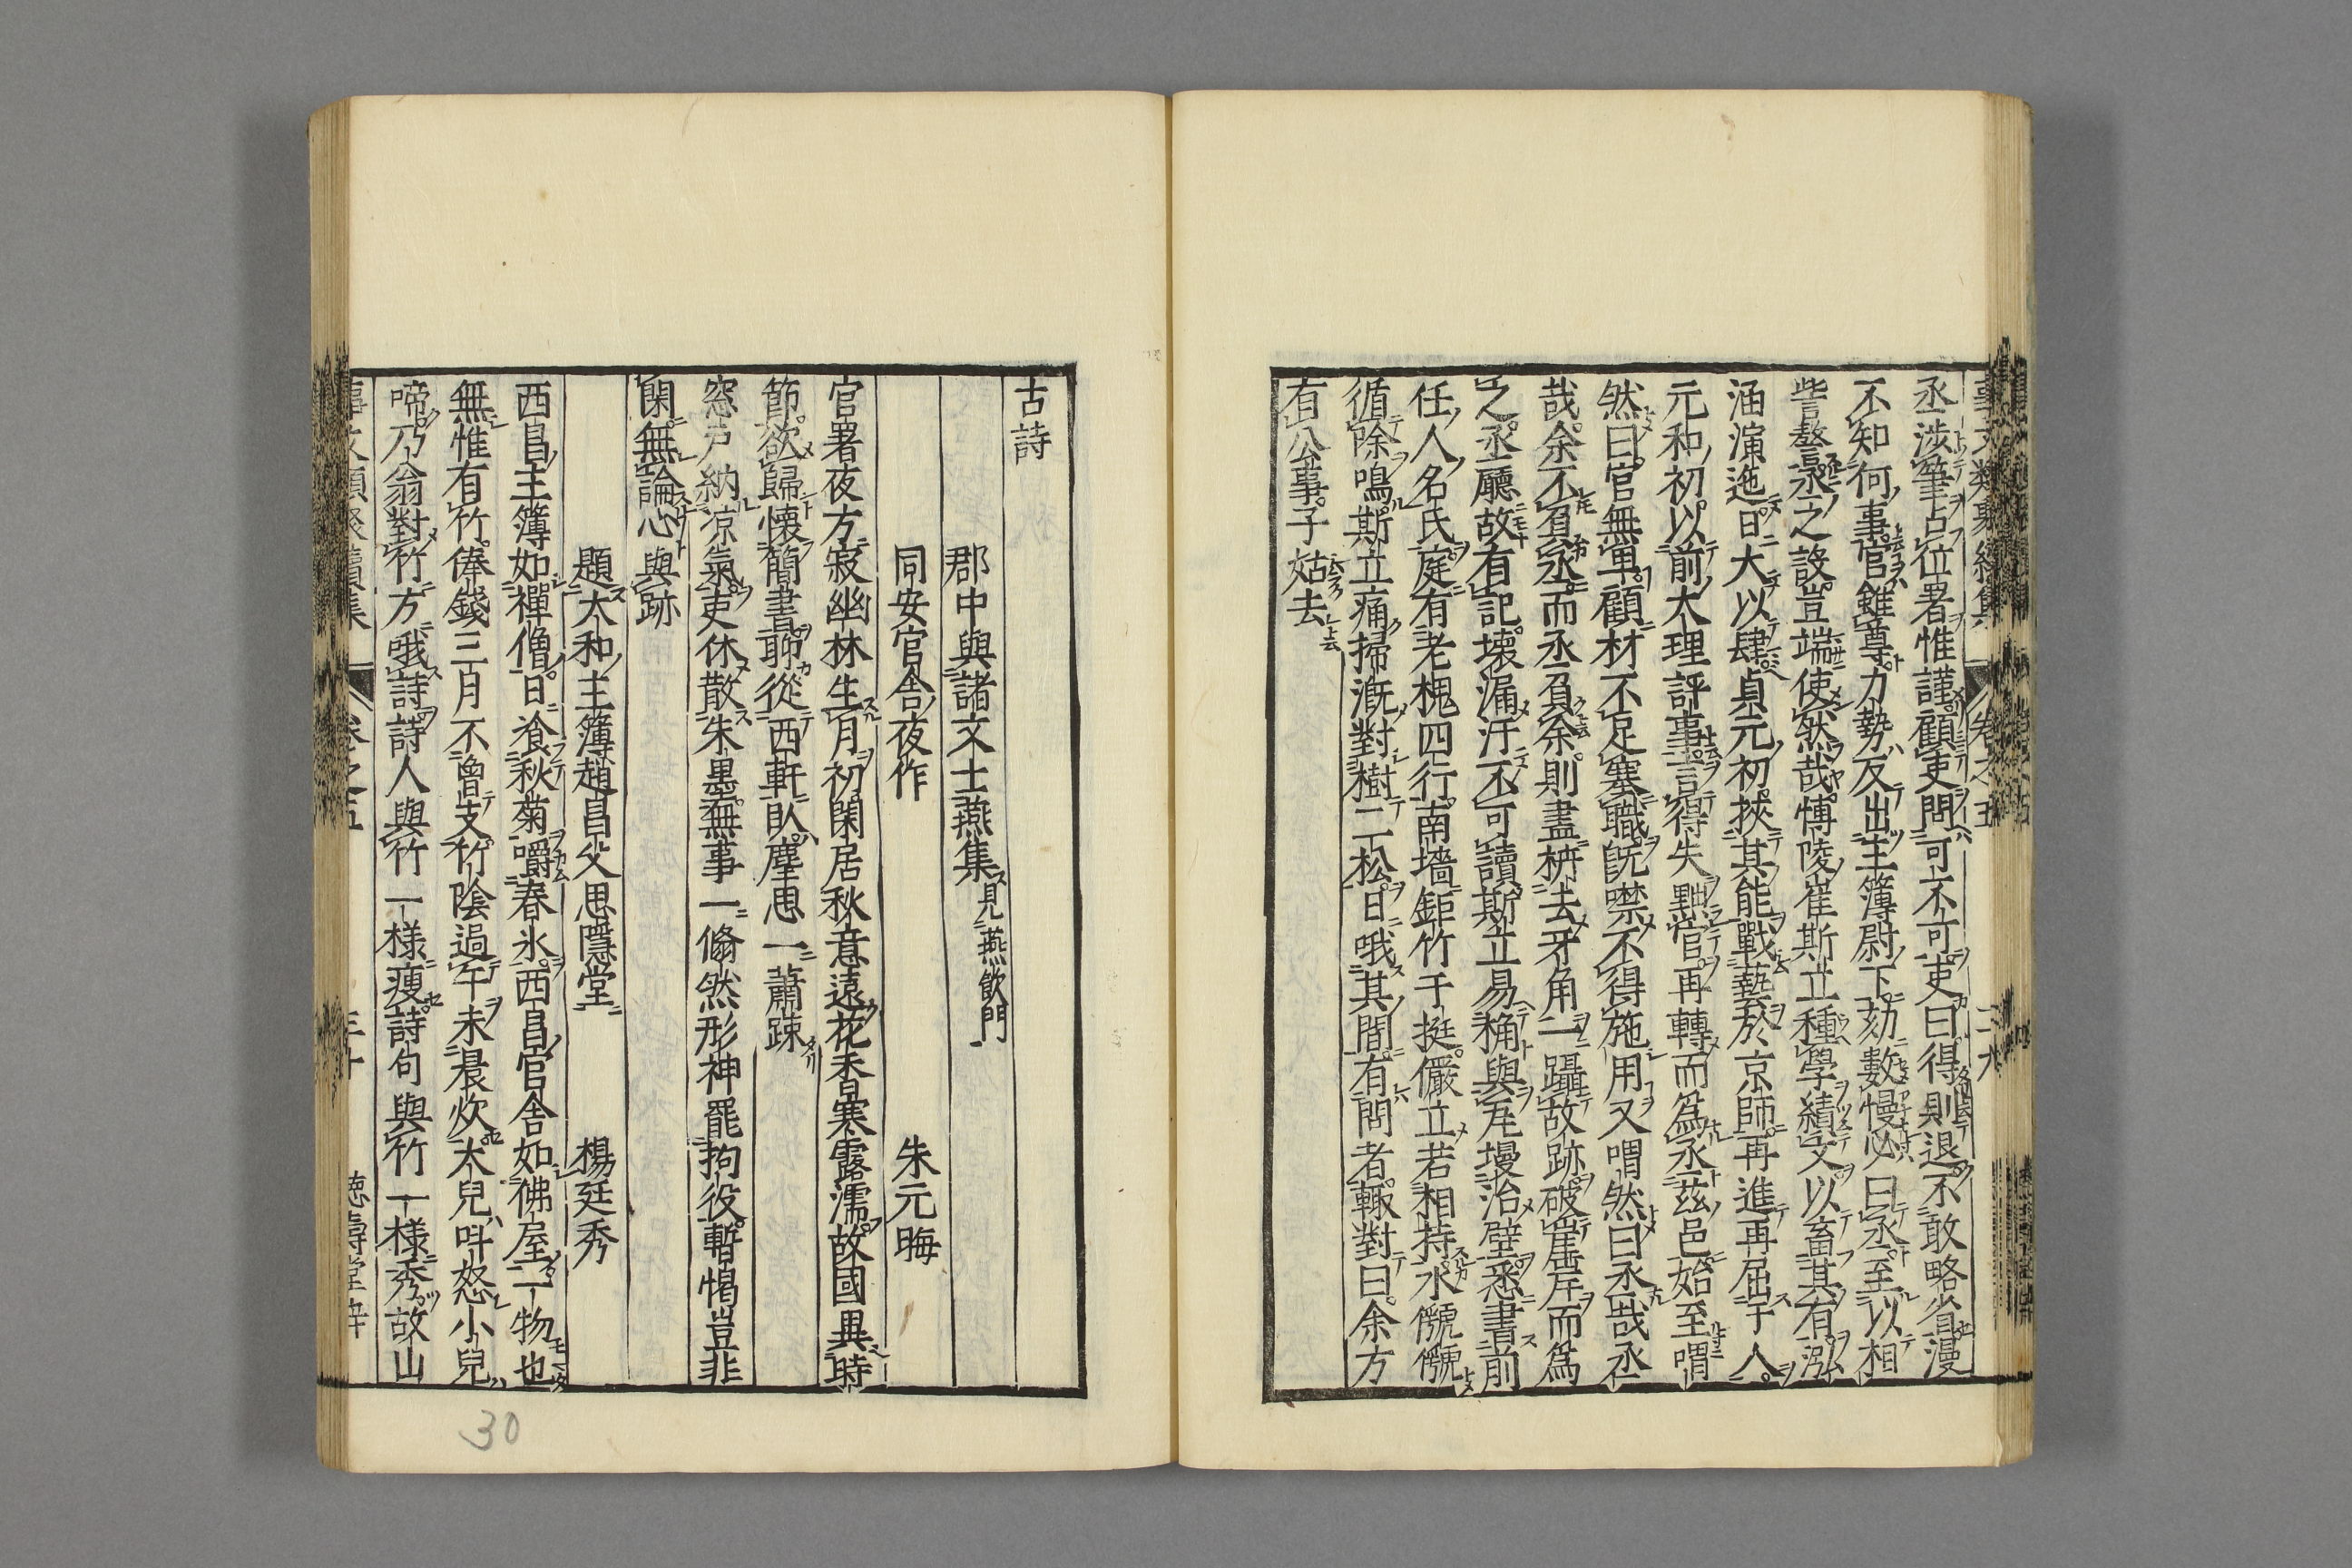 丞涉筆占位署惟謹顧吏問可不可吏曰得則退不敢略省漫
不知何事官雖尊力勢反出主簿尉下劾數慢必曰丞至以相
訾謷丞之設豈端使然哉博陵崔斯立種學績文以畜其有泓
涵演迤日大以肆貞元初挾其能戰藝於京師再進再屈于人
元和初以前大理評事言得失黜官再轉而爲丞茲邑始至喟
然曰官無卑顧材不足塞職旣噤不得施用又喟然曰丞哉丞
哉余不負丞而丞負余則盡枿去牙角一躡故跡破崖岸而爲
之丞廳故有記壞漏汙不可讀斯立易桷與瓦墁治壁悉書前
任人名氏庭有老槐四行南墻鉅竹千挺儼立若相持水㶁㶁
循除鳴斯立痛掃漑對樹二松日哦其間有問者輒對曰余方
有公事子姑去
古詩
郡中與諸文士燕集見燕飲門
同安官舍夜作　朱元晦
官署夜方寂幽林生月初閑居秋意遠花香寒露濡故國異時
節欲歸懷簡書聊從西軒臥塵思一蕭踈
窓戸納凉氣吏休散朱墨無事一翛然形神罷拘役暫愒豈非
閑無論心與跡
題太和主簿趙昌父思隱堂　楊廷秀
西昌主簿如禪僧日飡秋菊嚼春氷西昌官舍如佛屋一物也
無惟有竹俸錢三月不曾支竹陰過午未晨炊大兒叫怒小兒
啼乃翁對竹方哦詩詩人與竹一樣瘦詩句與竹一樣秀故山
事文類聚續集　卷之五　三十　德壽堂梓
30